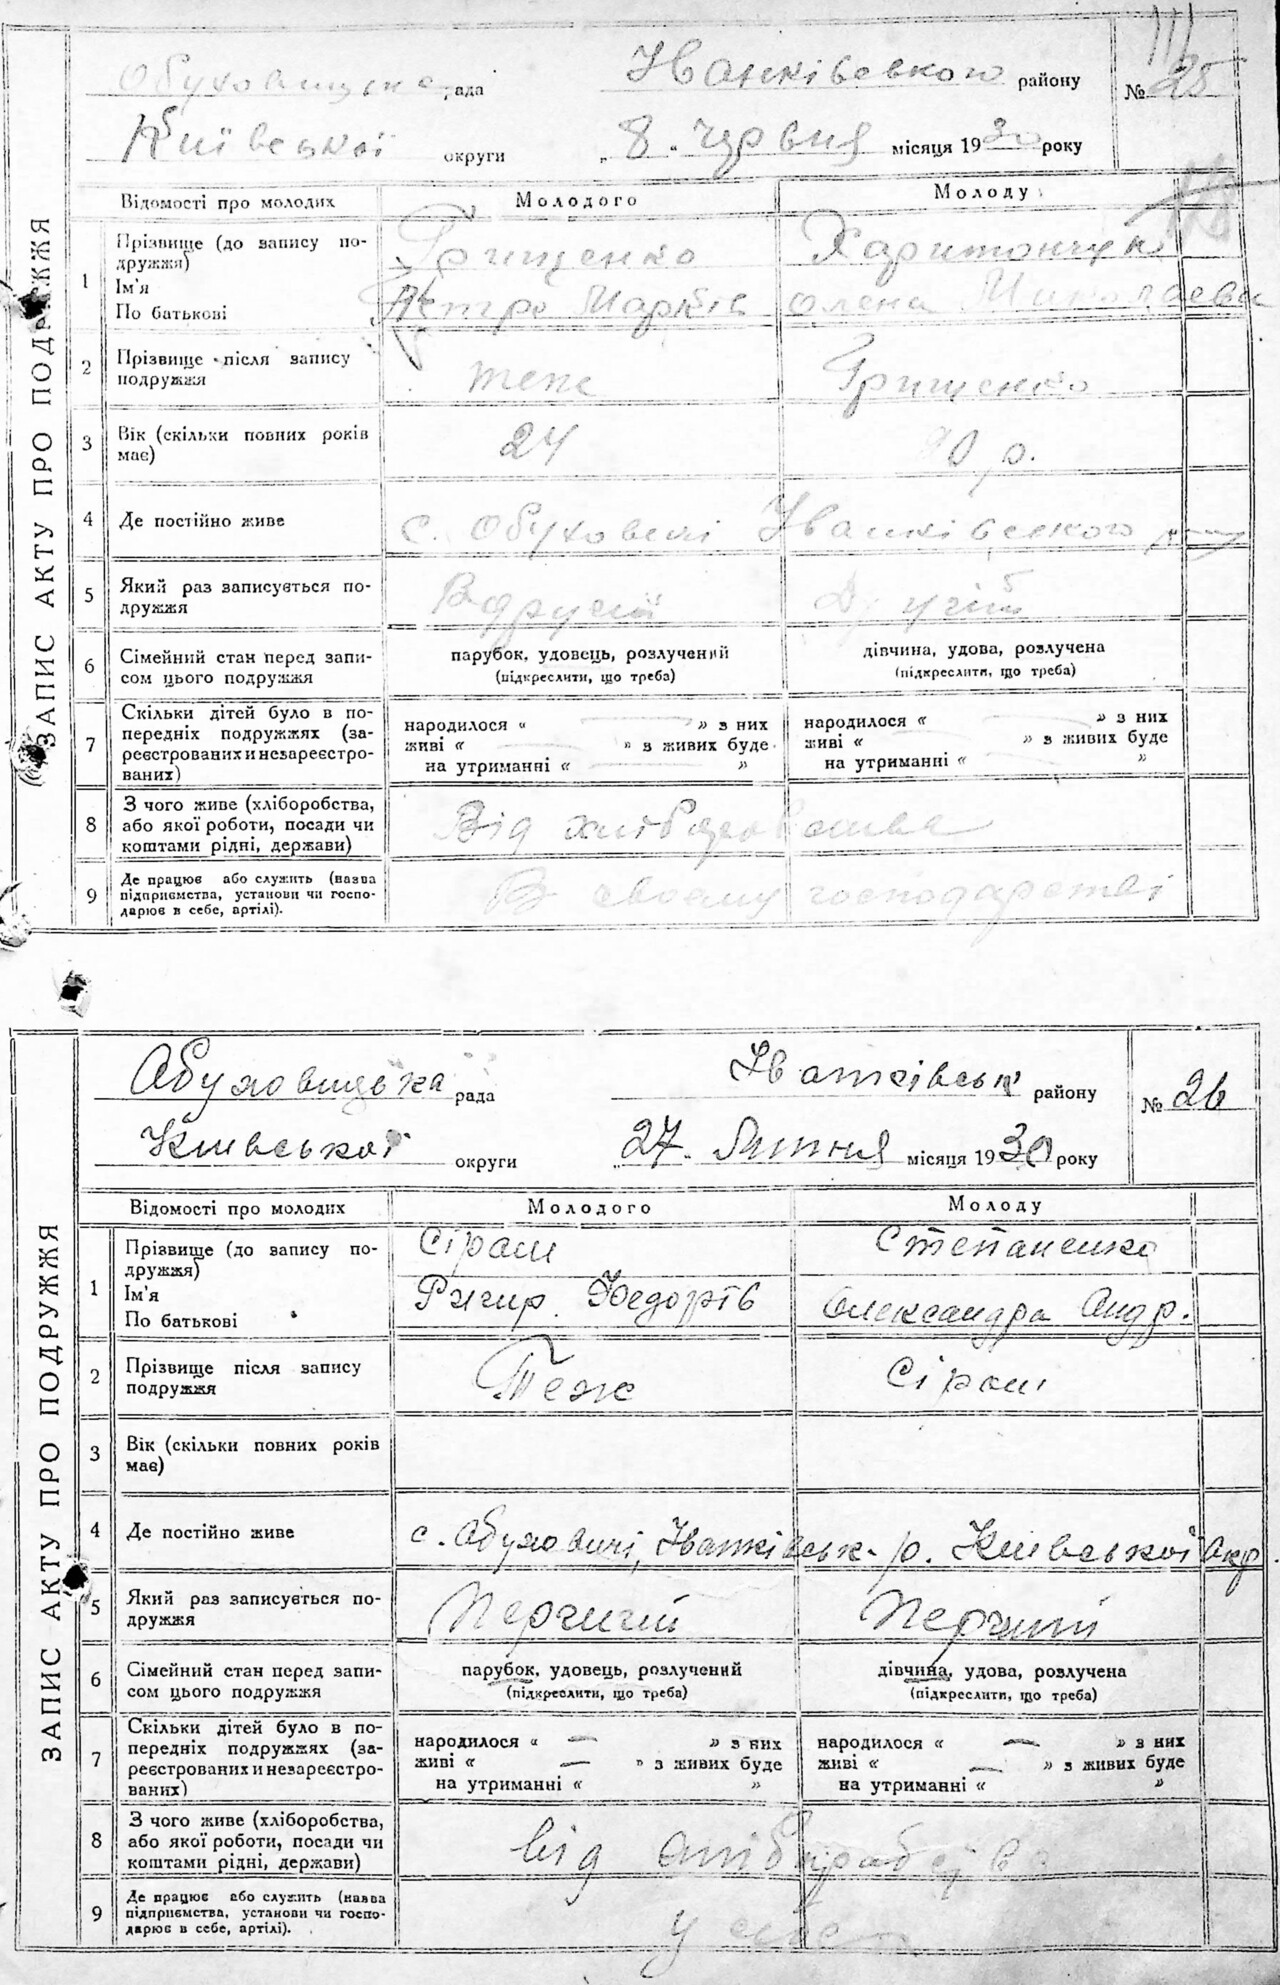 Обуховицька рада Іванківського району № 25
Київської округи „ 8 “ червня місяця 1930 року
ЗАПИС АКТУ ПРО ПОДРУЖЖЯ
Відомості про молодих Молодого Молоду
1 Прізвище (до запису по-
дружжя) Грищенко Харитончук
Ім'я
По батькові Петро Марків Олена Миколаєва
2 Прізвище після запису
подружжя теж Грищенко
3 Вік (скільки повних років
має) 24 р.
4 Де постійно живе с. Обуховичі Іванківського
5 Який раз записується по-
дружжя Вдругий Другий
6 Сімейний стан перед запи-
сом цього подружжя парубок, удовець, розлучений дівчина, удова, розлучена
(підкреслити, що треба) (підкреслити, що треба)
7 Скільки дітей було в по-
передніх подружжях (за-
реєстрованих и незареєстро-
ваних)
народилося « — » з них народилося « — » з них
живі « — » з живих буде живі « — » з живих буде
на утриманні « — » на утриманні « »
8 З чого живе (хліборобства,
або якої роботи, посади чи
коштами рідні, держави) Від
9 Де працює або служить (назва
підприємства, установи чи госпо-
дарює в себе, артілі). В своєму господарстві
Обуховицька рада Іванківськ району № 26
Київської округи „ 27. Лютня місяця 1930 року
ЗАПИС АКТУ ПРО ПОДРУЖЖЯ
Відомості про молодих Молодого Молоду
1 Прізвище (до запису по-
дружжя) Сірош Степаненко
Ім'я
По батькові Федорів Олександра Андр.
2 Прізвище після запису
подружжя Теж Сірош
3 Вік (скільки повних років
має)
4 Де постійно живе с. Обуховичі, Іванківськ. р. Київської Окр.
5 Який раз записується по-
дружжя Перчий Перчий
6 Сімейний стан перед запи-
сом цього подружжя парубок, удовець, розлучений дівчина, удова, розлучена
(підкреслити, що треба) (підкреслити, що треба)
7 Скільки дітей було в по-
передніх подружжях (за-
реєстрованих и незареєстро-
ваних)
народилося « — » з них народилося « — » з них
живі « — » з живих буде живі « — » з живих буде
на утриманні « » на утриманні « »
8 З чого живе (хліборобства,
або якої роботи, посади чи
коштами рідні, держави) від
9 Де працює або служить (назва
підприємства, установи чи госпо-
дарює в себе, артілі). у